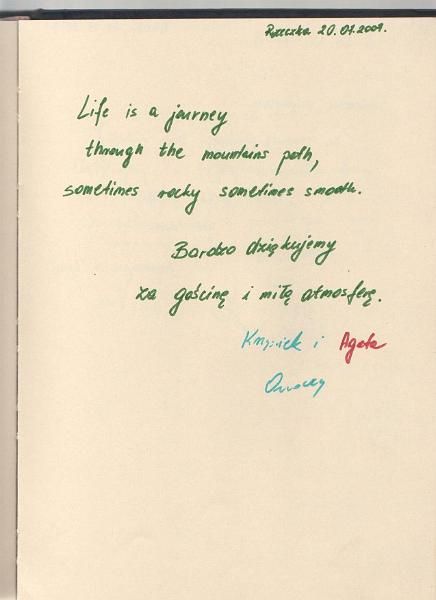 Rzeczka 20.07.2009.
Life is a journey
through the mountains path,
sometimes rocky sometimes smooth.
Bardzo dziękujemy
za gościnę i miłą atmosferę.
i Agata